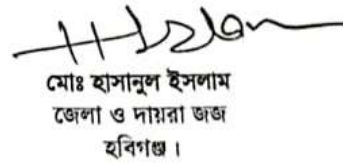 মোঃ হাসানুল ইসলাম
জেলা ও দায়রা জজ
হবিগঞ্জ।